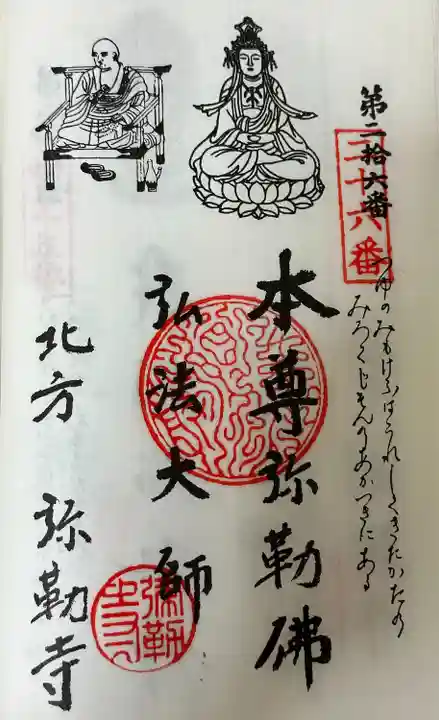 第二拾六番
二十六番
つゆのみもけふはうれしくきたかたの
みろくじそんのあかつきにある
本尊弥勒佛
弘法大師
北方 弥勒寺
弥勒